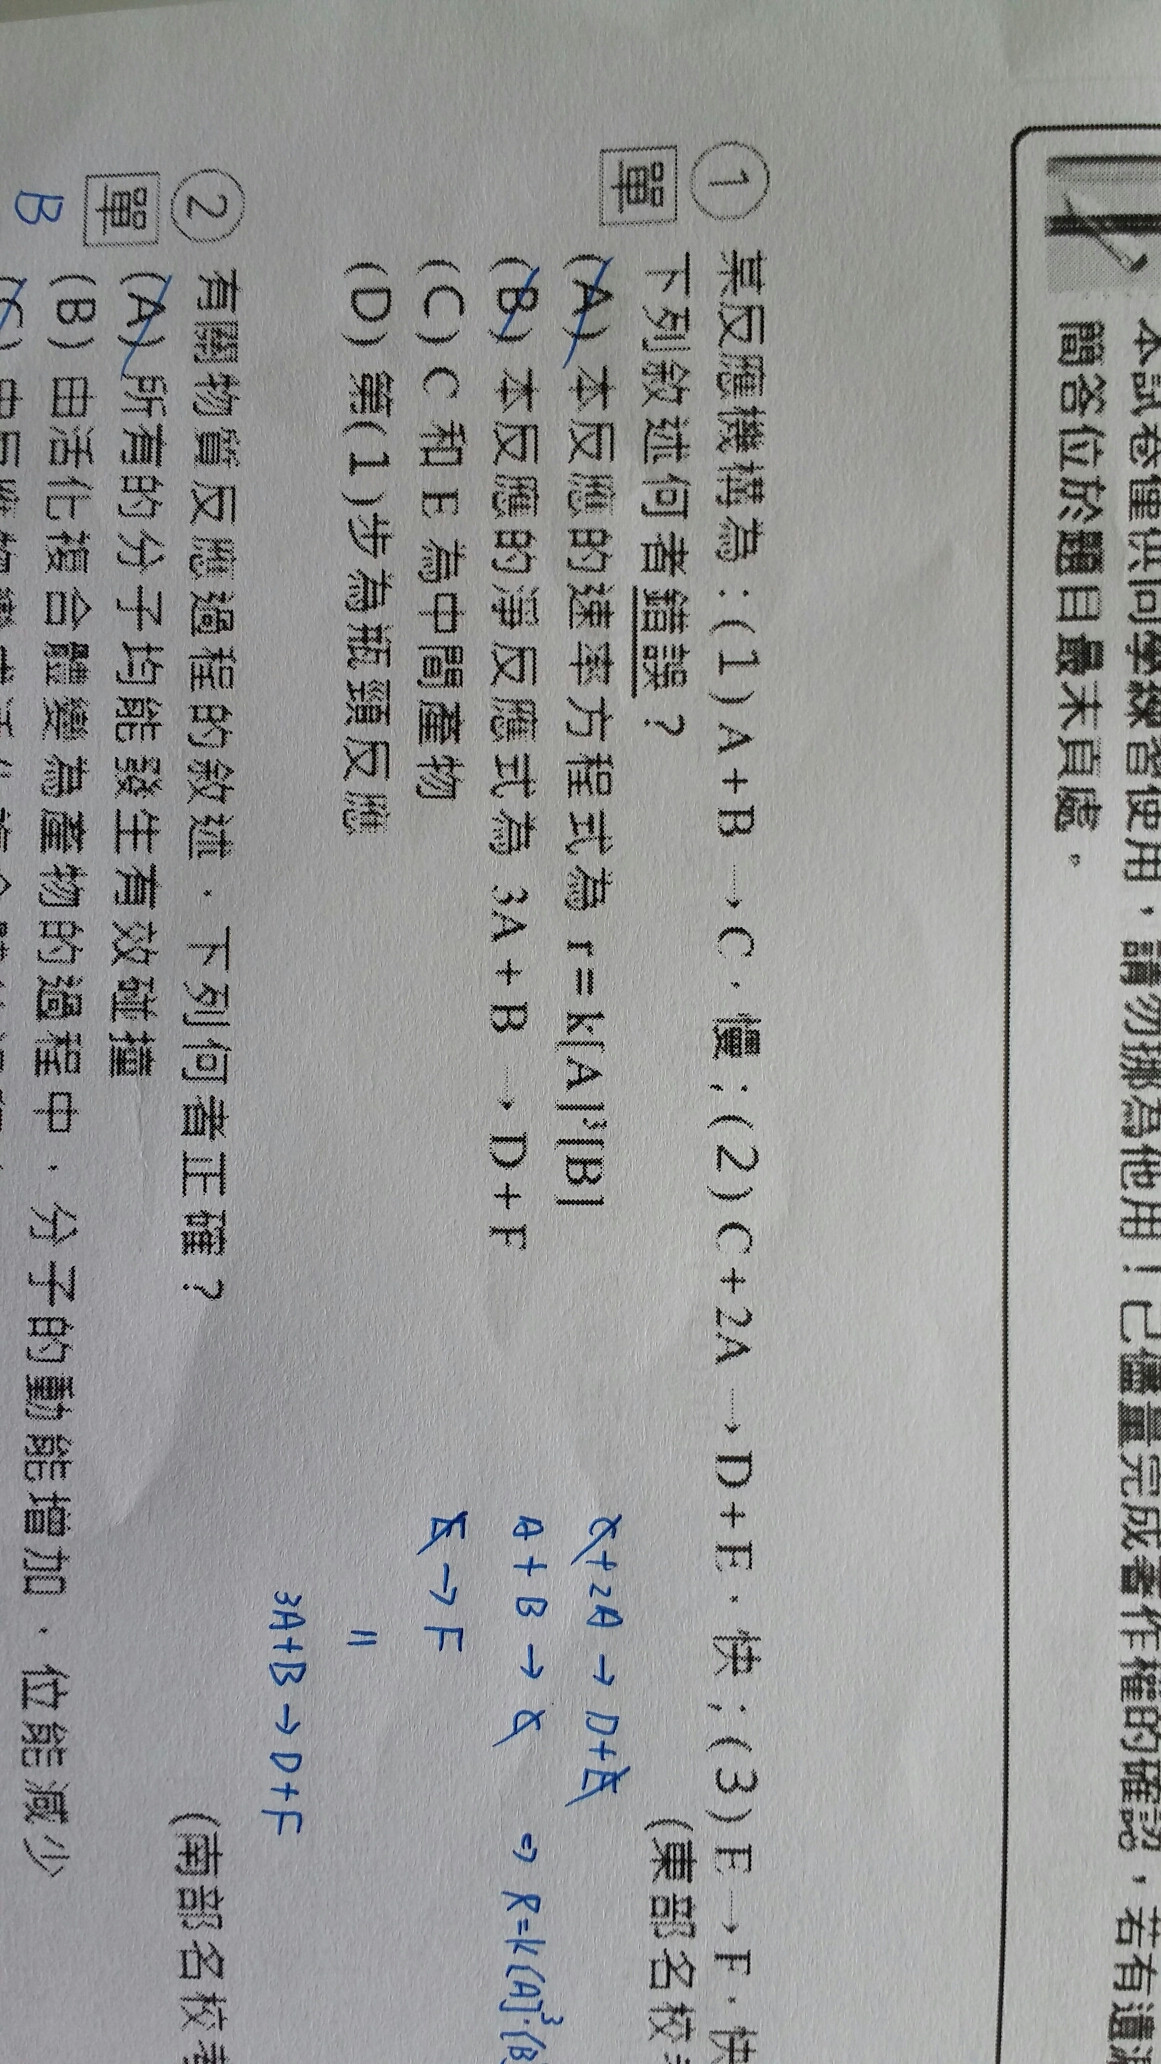 本試卷僅供同學練習使用，請勿挪為他用！已儘量完成著作權的確認，若有遺
簡答位於題目最末頁處。
① 某反應機構為：(1)A+B → C，慢；(2)C+2A → D+E，快；(3)E → F，快
單 下列敘述何者錯誤？ (東部名校
(A) 本反應的速率方程式為 r=k[A]³[B]
(B) 本反應的淨反應式為 3A+B → D+F
(C) C 和 E 為中間產物
(D) 第(1)步為瓶頸反應
C+2A → D+E
A+B → C ⇒ R=k[A]³·[B
E → F
=
3A+B → D+F
② 有關物質反應過程的敘述，下列何者正確？ (南部名校
單 (A) 所有的分子均能發生有效碰撞
B (B) 由活化複合體變為產物的過程中，分子的動能增加，位能減少
(C)